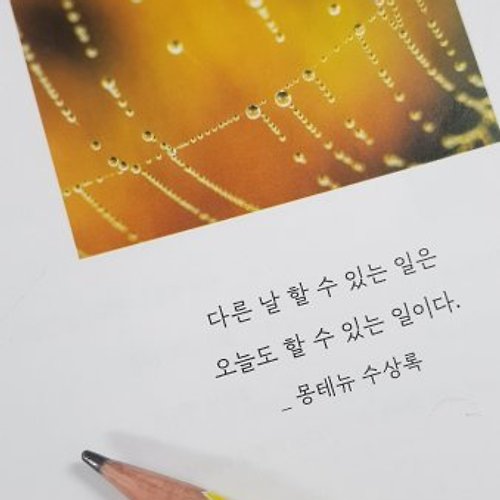 다른 날 할 수 있는 일은
오늘도 할 수 있는 일이다.
_ 몽테뉴 수상록